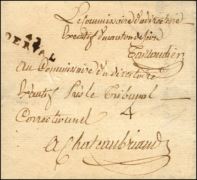 Le Commissaire du directoire
Executif du canton de
44
DERVAL
au Commissaire du directoire
Executif Près le Tribunal
Correctionnel
4
A Chateaubriand